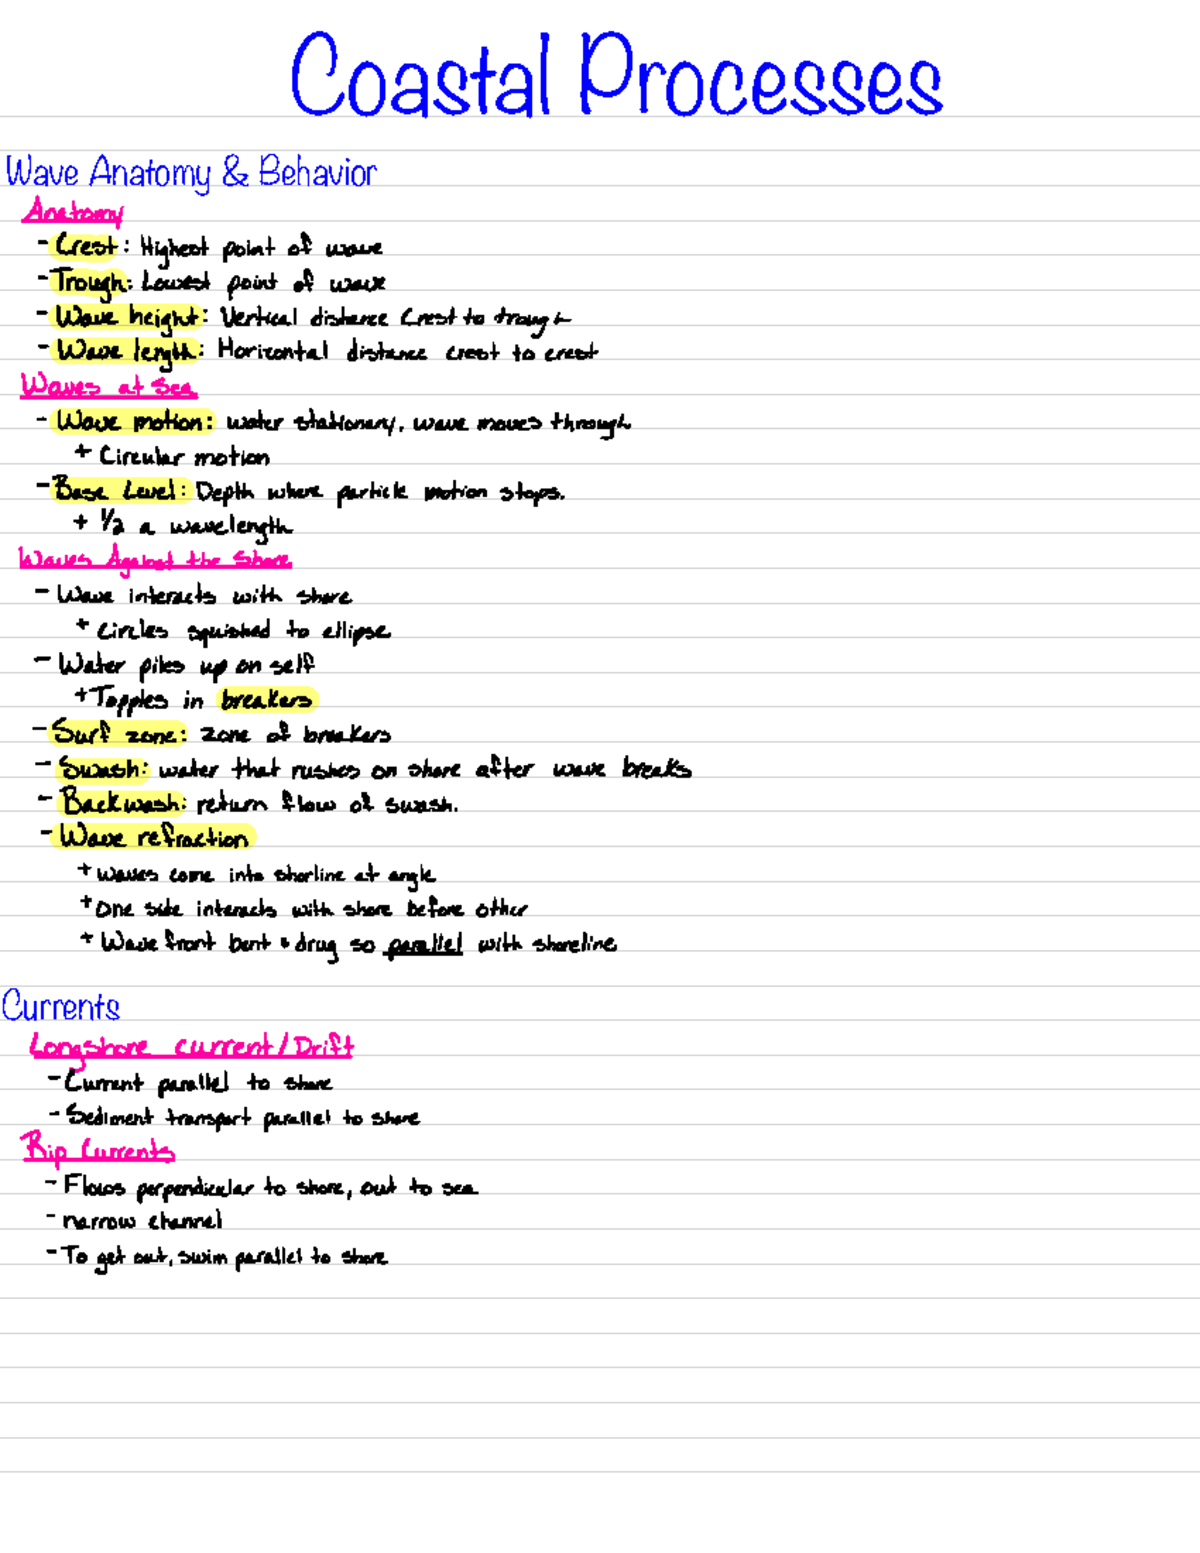 Coastal Processes
Wave Anatomy & Behavior
Anatomy
- Crest: Highest point of wave
- Trough: Lowest point of wave
- Wave height: Vertical distance Crest to trough
- Wave length: Horizontal distance crest to crest
Waves at Sea
- Wave motion: water stationary, wave moves through
+ Circular motion
- Base Level: Depth where particle motion stops.
+ 1/2 a wavelength
Waves Against the Shore
- Wave interacts with shore
+ Circles squished to ellipse
- Water piles up on self
+ Topples in breakers
- Surf zone: zone of breakers
- Swash: water that rushes on shore after wave breaks
- Backwash: return flow of swash.
- Wave refraction
+ waves come into shorline at angle
+ One side interacts with shore before other
+ Wave front bent & drug so parallel with shoreline
Currents
Longshore current/Drift
- Current parallel to shore
- Sediment transport parallel to shore
Rip Currents
- Flows perpendicular to shore, out to sea
- narrow channel
- To get out, swim parallel to shore